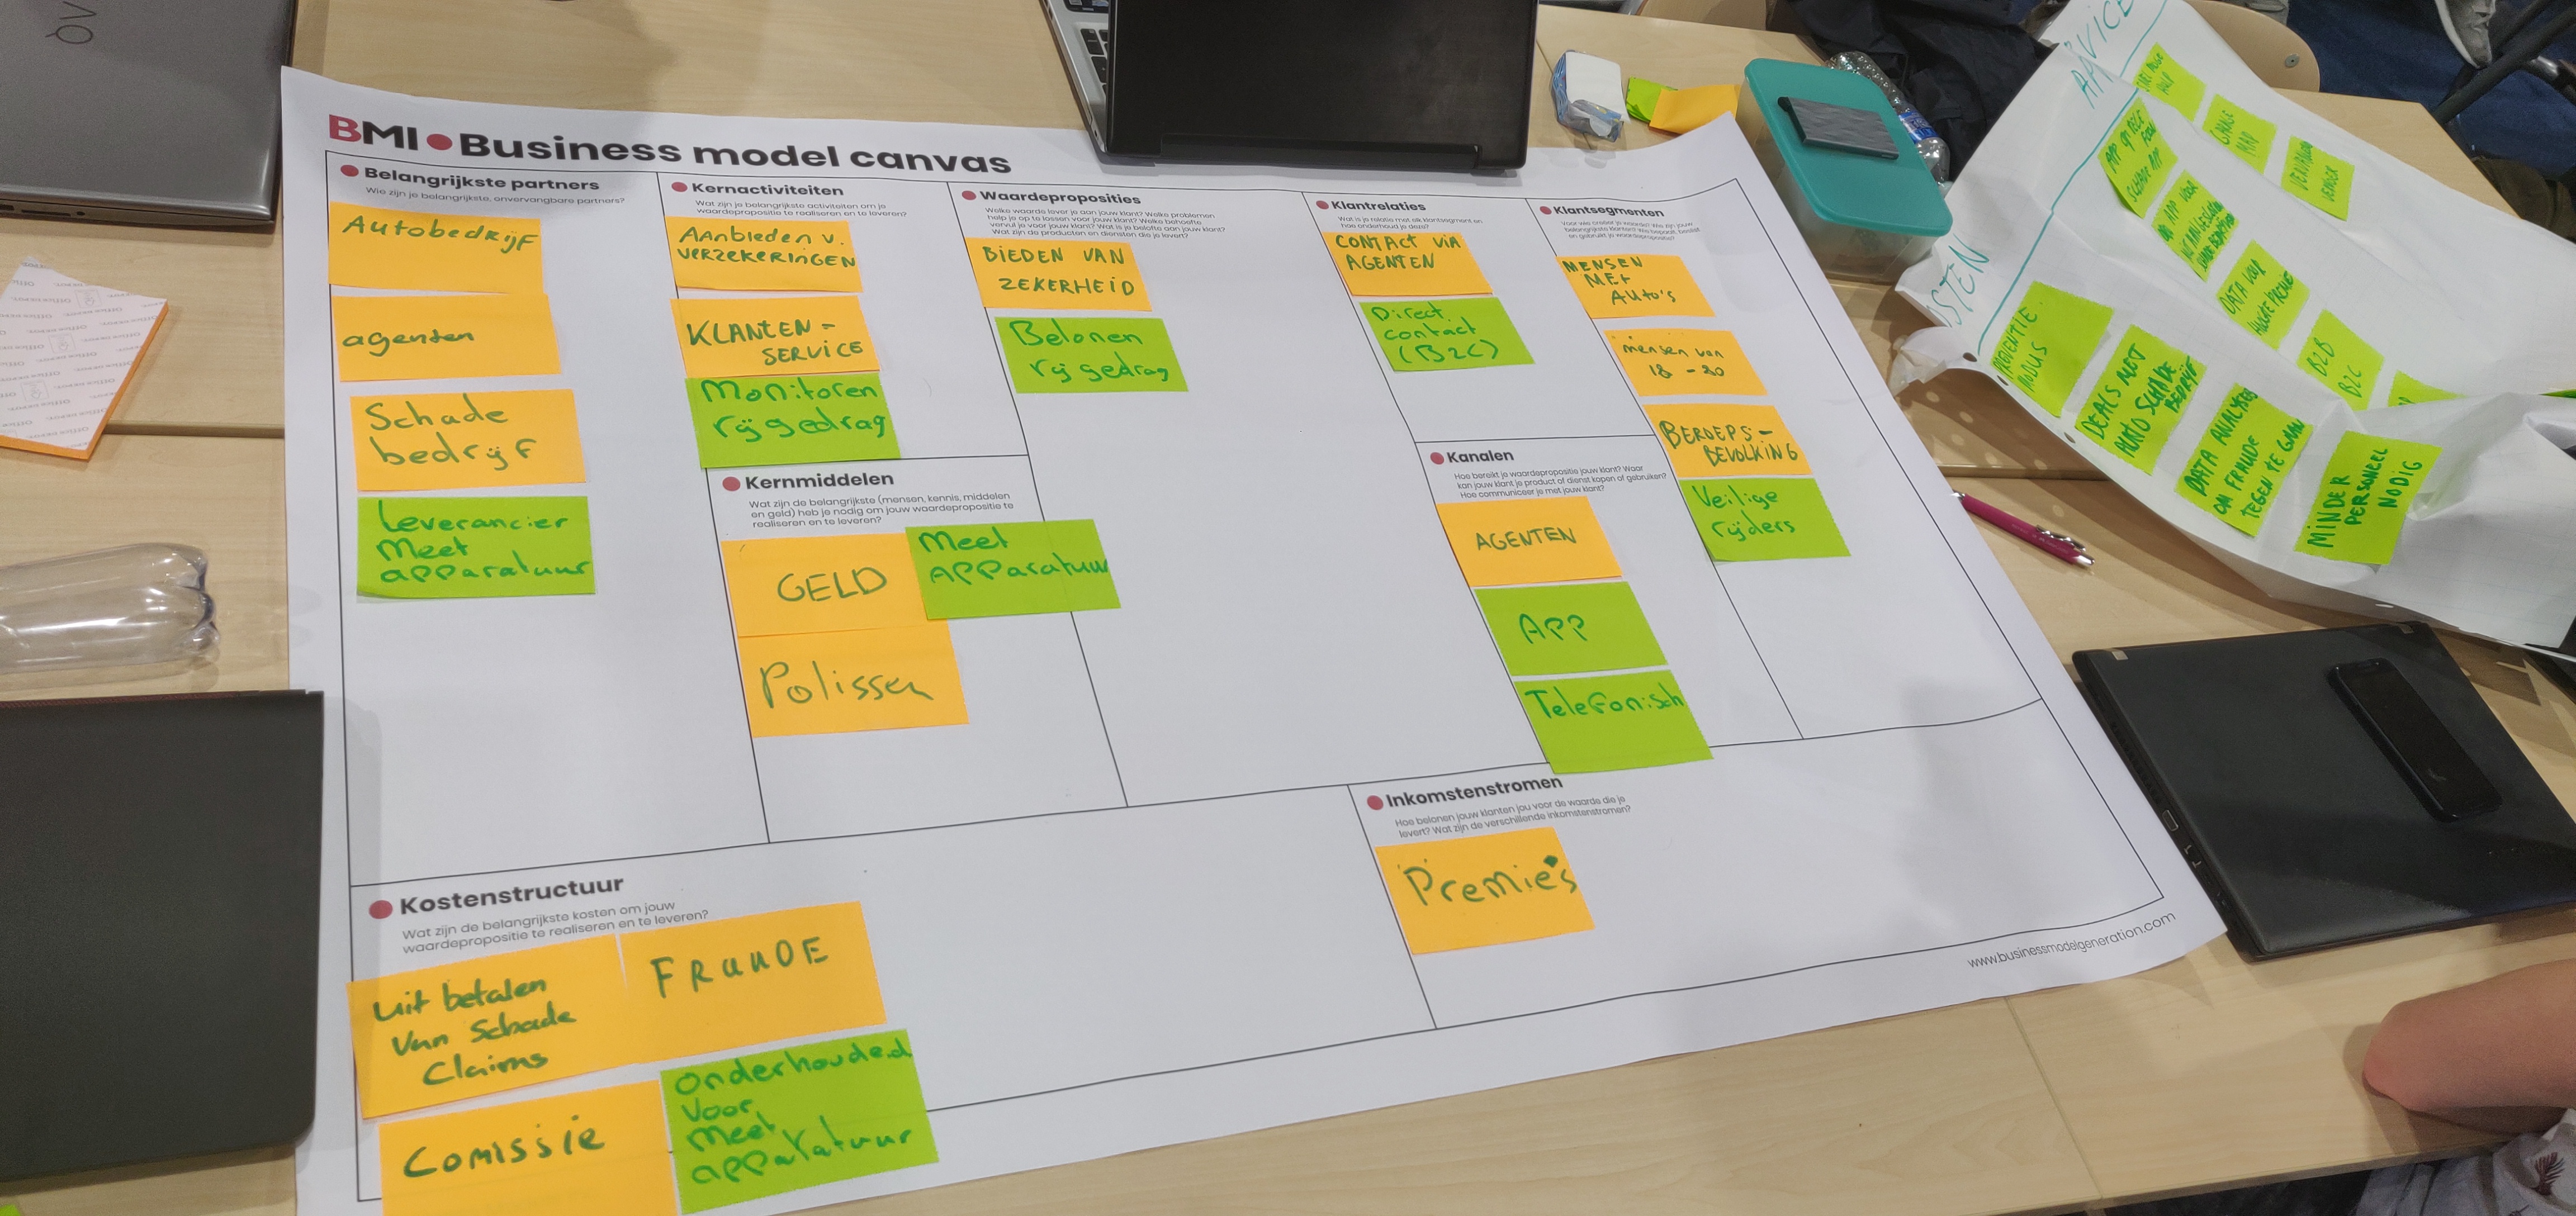 BMI Business model canvas
Belangrijkste partners
Wie zijn je belangrijkste, onvervangbare partners?
Autobedrijf
agenten
Schade
bedrijf
Leverancier
Meet
apparatuur
Kernactiviteiten
Wat zijn je belangrijkste activiteiten om je
waardepropositie te realiseren en te leveren?
AAnbieden v.
VERZEKERINGEN
KLANTEN-
SERVICE
Monitoren
rijgedrag
Kernmiddelen
Wat zijn de belangrijkste (mensen, kennis, middelen
en geld) heb je nodig om jouw waardepropositie te
realiseren en te leveren?
GELD
Meet
APParatuur
Polissen
Waardeproposities
Welke waarde lever je aan jouw klant? Welke problemen
help je op te lossen voor jouw klant? Welke behoefte
vervul je voor jouw klant? Wat is je belofte aan jouw klant?
Wat zijn de producten en diensten die je levert?
BIEDEN VAN
ZEKERHEID
Belonen
rijgedrag
Klantrelaties
Wat is je relatie met elk klantsegment en
hoe onderhoud je deze?
CONTACT VIA
AGENTEN
Direct
contact
(B2C)
Kanalen
Hoe bereikt je waardepropositie jouw klant? Waar
kan jouw klant je product of dienst kopen of gebruiken?
Hoe communiceer je met jouw klant?
AGENTEN
APP
Telefonisch
Klantsegmenten
MENSEN
MET
AUTO'S
mensen van
18 - 80
BEROEPS-
BEVOLKING
Veilige
rijders
Kostenstructuur
Wat zijn de belangrijkste kosten om jouw
waardepropositie te realiseren en te leveren?
uit betalen
Van Schade
Claims
FRAUDE
Comissie
onderhouded
voor
meet
apparatuur
Inkomstenstromen
Hoe belonen jouw klanten jou voor de waarde die je
levert? Wat zijn de verschillende inkomstenstromen?
Premie's
www.businessmodelgeneration.com
PREVENTIE
MODUS
DEALS MET
AUTO SCHADE
BEDRIJF
DATA ANALYSE
OM FRAUDE
TEGEN TE GAAN
MINDER
PERSONEEL
NODIG
B2B
B2C